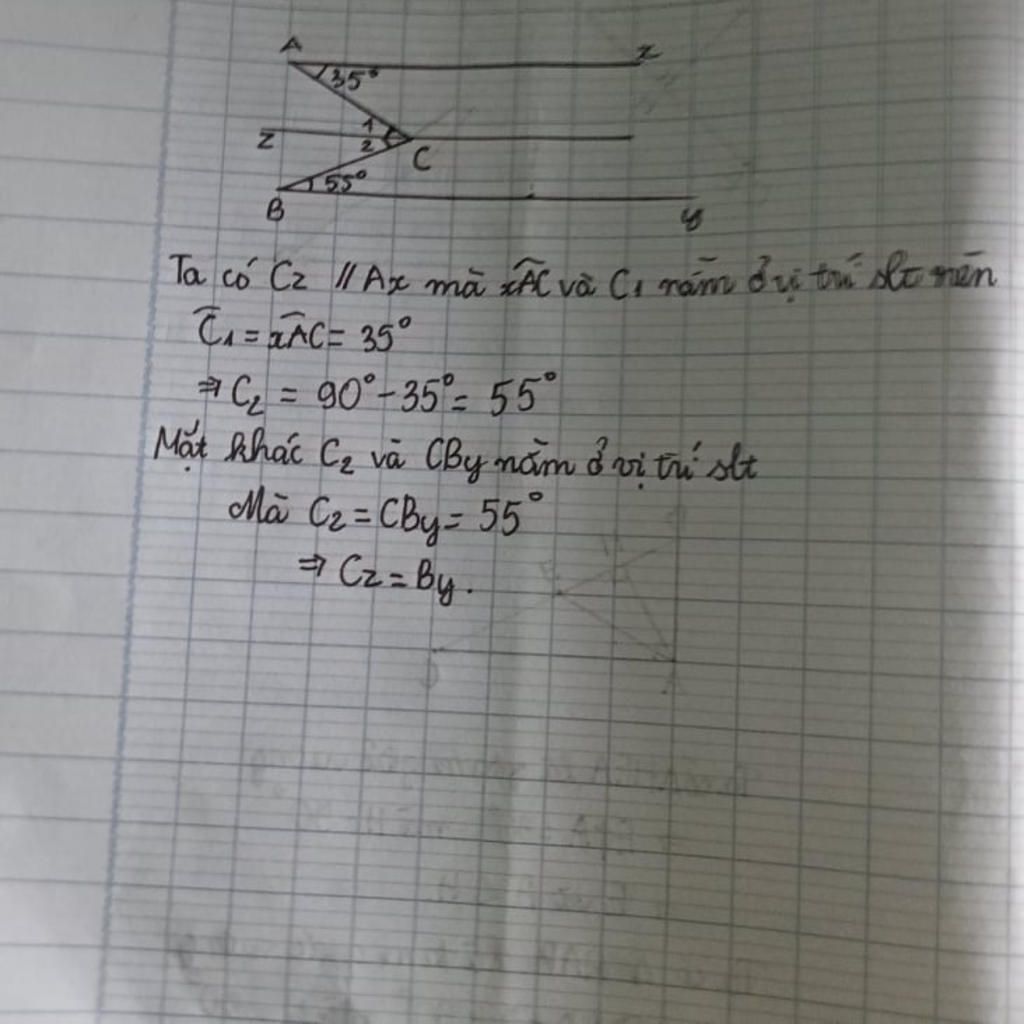 A x
35°
z 1
2 C
55°
B y
Ta có Cz // Ax mà xAC và C₁ nằm ở vị trí slt nên
C₁ = xAC = 35°
⇒ C₂ = 90° - 35° = 55°
Mặt khác C₂ và CBy nằm ở vị trí slt
Mà C₂ = CBy = 55°
⇒ Cz = By.